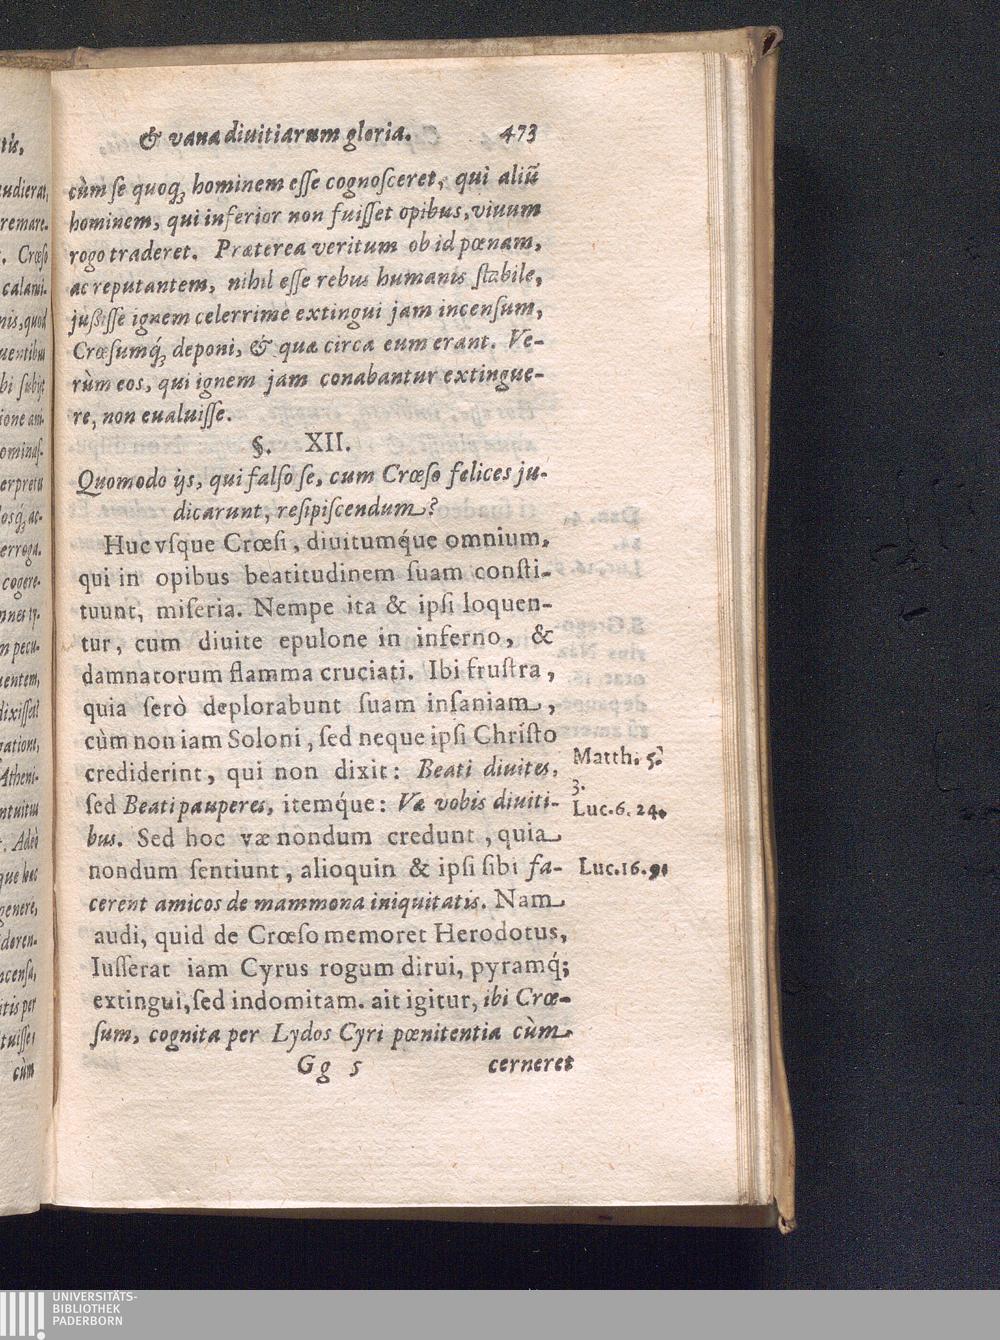 & vana diuitiarum gloria. 473
cùm se quoq; hominem esse cognosceret, qui aliū
hominem, qui inferior non fuisset opibus, viuum
rogo traderet. Præterea veritum ob id pœnam,
ac reputantem, nihil esse rebus humanis stabile,
jussisse ignem celerrimè extingui jam incensum,
Crœsumq́; deponi, & quæ circa eum erant. Ve-
rùm eos, qui ignem jam conabantur extingue-
re, non eualuisse.
§. XII.
Quomodo ijs, qui falso se, cum Crœso felices ju-
dicarunt, resipiscendum?
Huc vsque Crœsi, diuitumq́ue omnium,
qui in opibus beatitudinem suam consti-
tuunt, miseria. Nempe ita & ipsi loquen-
tur, cum diuite epulone in inferno, &
damnatorum flamma cruciati. Ibi frustra,
quia serò deplorabunt suam insaniam,
cùm non iam Soloni, sed neque ipsi Christo
crediderint, qui non dixit: Beati diuites,
sed Beati pauperes, itemq́ue: Væ vobis diuiti-
bus. Sed hoc væ nondum credunt, quia
nondum sentiunt, alioquin & ipsi sibi fa-
cerent amicos de mammona iniquitatis. Nam
audi, quid de Crœso memoret Herodotus,
Iusserat iam Cyrus rogum dirui, pyramq́;
extingui, sed indomitam. ait igitur, ibi Crœ-
sum, cognita per Lydos Cyri pœnitentia cùm
Gg 5 cerneret
Matth. 5.
3.
Luc. 6. 24.
Luc. 16. 9.
tis,
audierat,
remare.
. Crœso
calami-
nis, quod
uentibus
bi subijt
ione ani-
ominas-
erpretis
losq́; ac-
erroga.
cogere-
nnes ty-
m pecu-
uentem,
dixisset
rations,
Atheni-
ntuitus
. Adeò
que hæc
genere,
deren-
ncensa,
itis per
tuisse;
cùm
UNIVERSITÄTS-
BIBLIOTHEK
PADERBORN